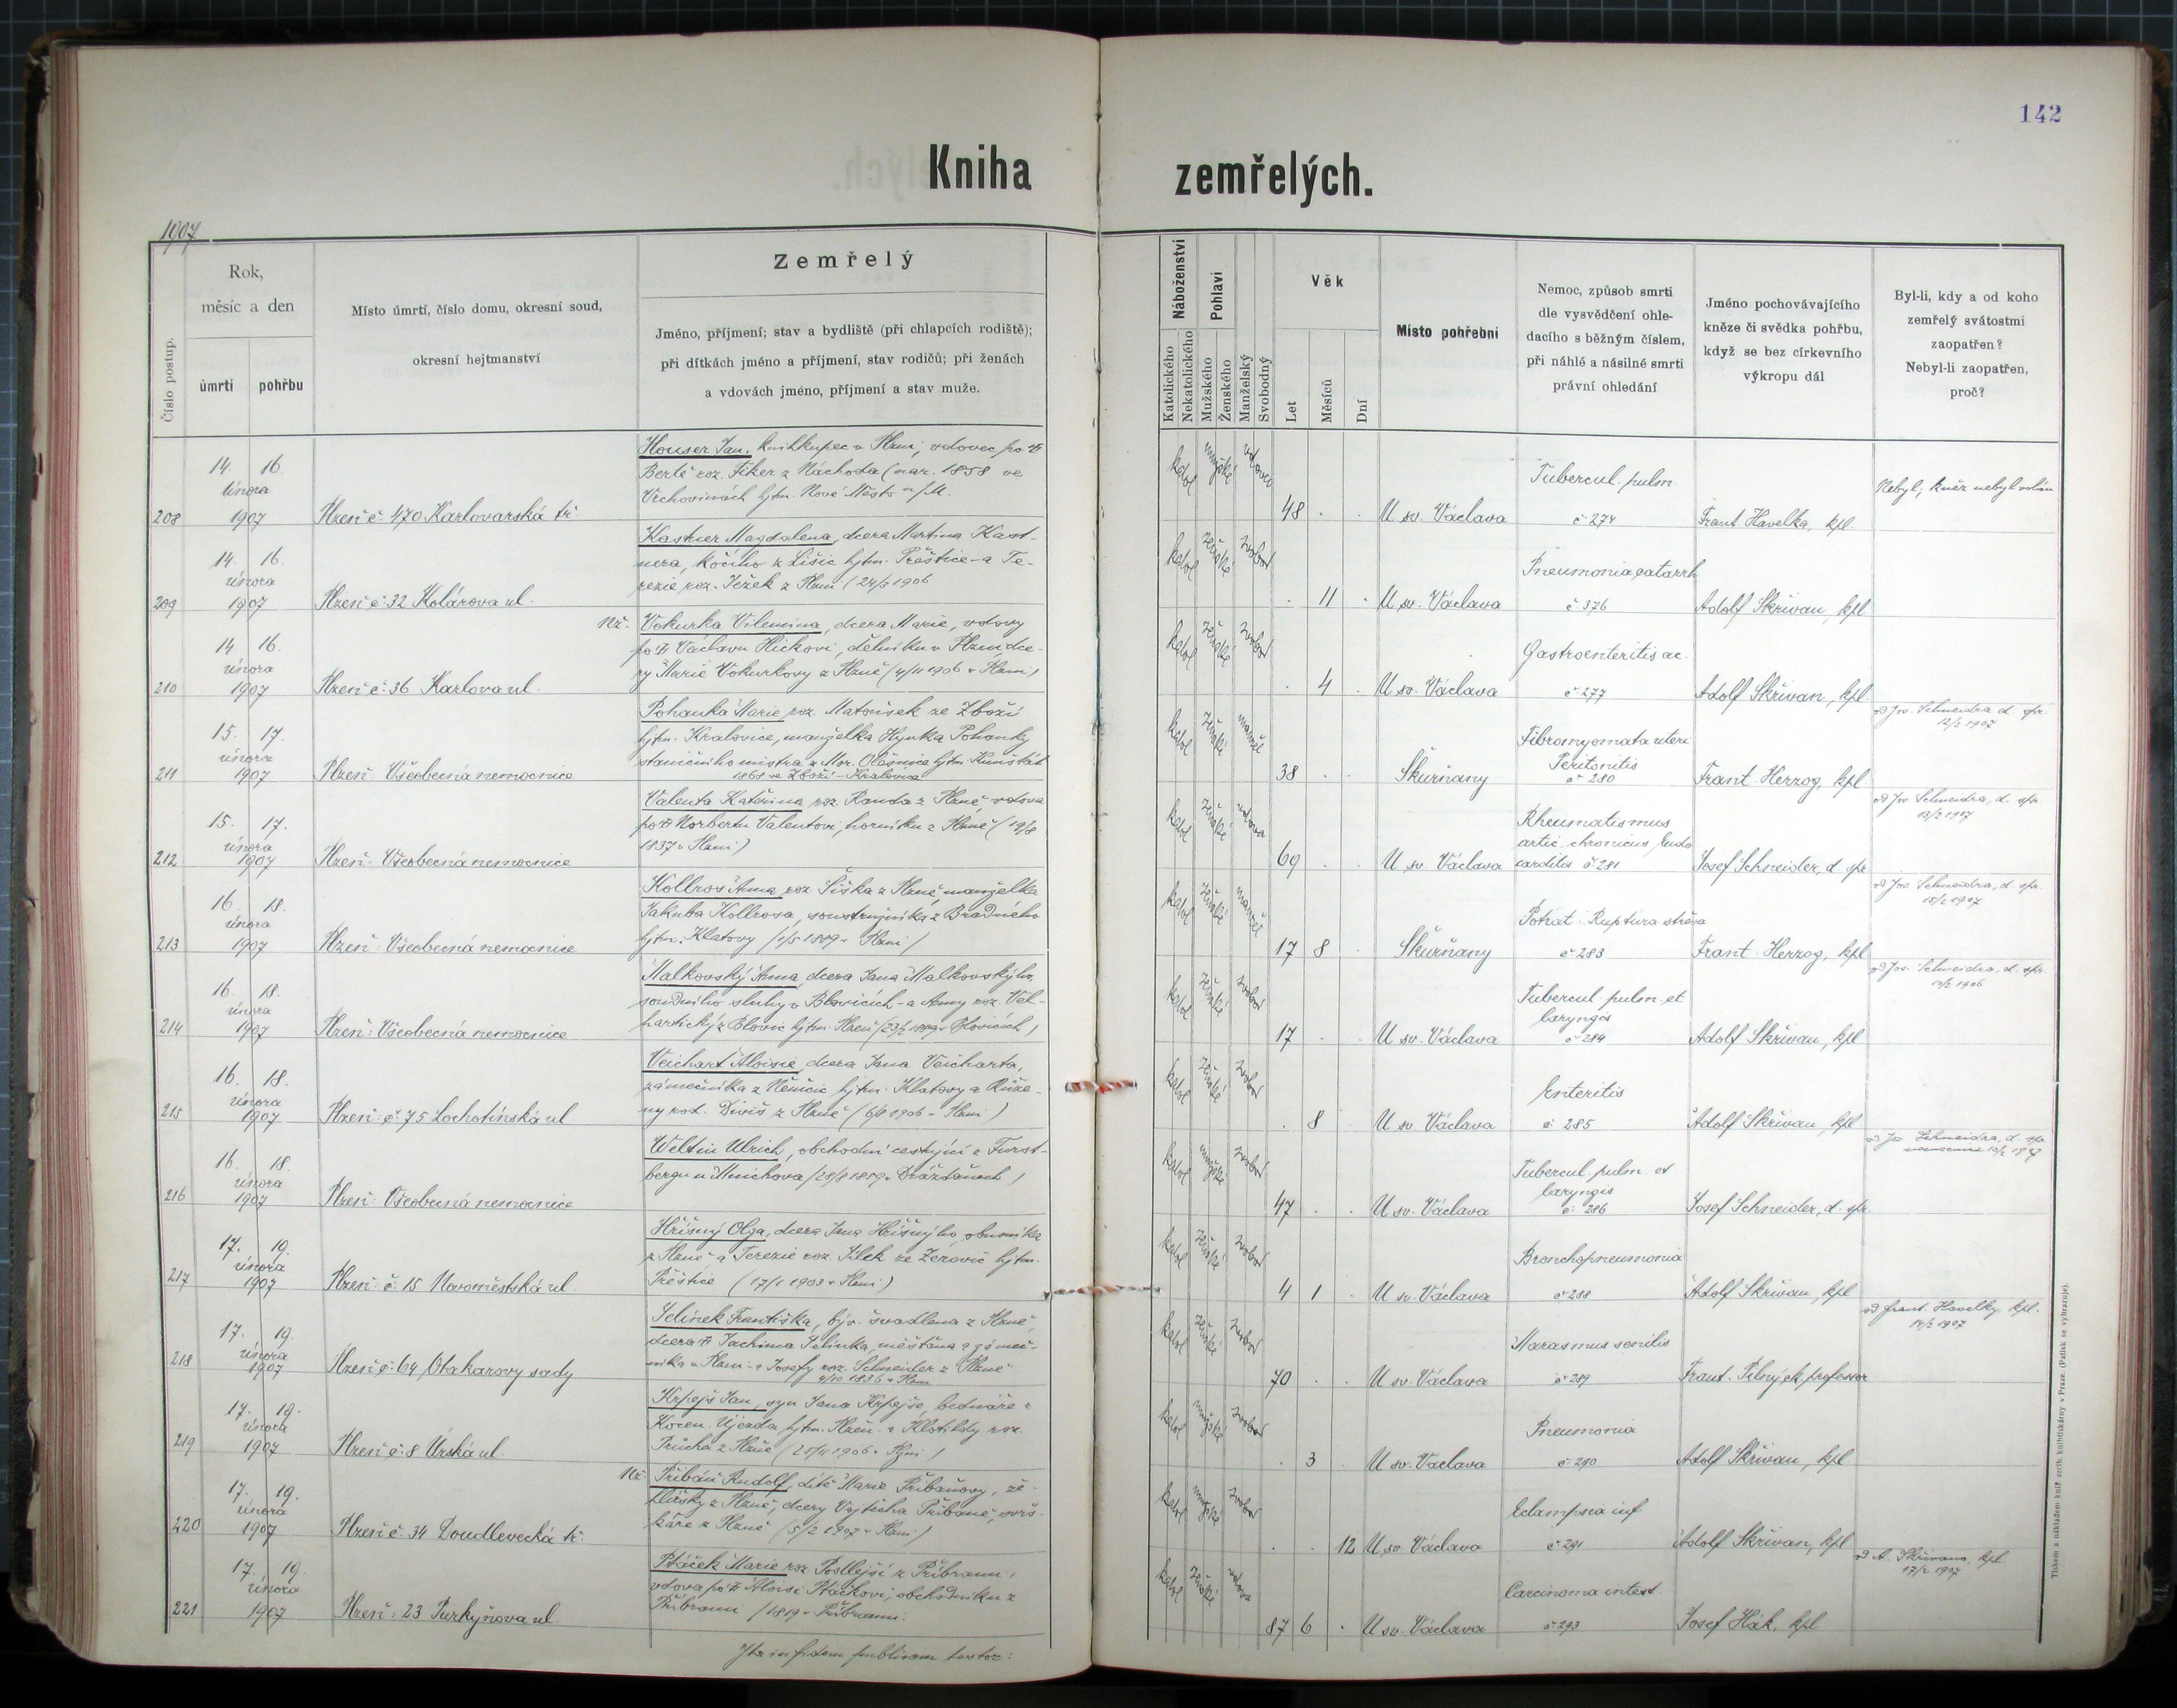 142
Kniha zemřelých.
1907
Číslo postup.
Rok,
měsíc a den
úmrtí
pohřbu
Místo úmrtí, číslo domu, okresní soud,
okresní hejtmanství
Zemřelý
Jméno, příjmení; stav a bydliště (při chlapcích rodiště);
při dítkách jméno a příjmení, stav rodičů; při ženách
a vdovách jméno, příjmení a stav muže.
Náboženství
Katolického
Nekatolického
Pohlaví
Mužského
Ženského
Manželský
Svobodný
Věk
Let
Měsíců
Dní
Místo pohřební
Nemoc, způsob smrti
dle vysvědčení ohle-
dacího s běžným číslem,
při náhlé a násilné smrti
právní ohledání
Jméno pochovávajícího
kněze či svědka pohřbu,
když se bez církevního
výkropu dál
Byl-li, kdy a od koho
zemřelý svátostmi
zaopatřen?
Nebyl-li zaopatřen,
proč?
208
14. 16.
února
1907
Plzeň č. 470 Karlovarská tř.
Houser Jan, knihkupec v Plzni, vdovec po †
Bertě roz. Fiker z Náchoda (nar. 1858 ve
Vrchovinách hjtm. Nové Město n/M.
katol mužské vdovec
48 . .
U sv. Václava
Tubercul. pulm.
č 274
Frant Havelka, kpl.
Nebyl; kněz nebyl volán
209
14. 16.
února
1907
Plzeň č. 32 Kolárova ul.
Kastner Magdalena, dcera Martina Kast-
nera, kočího z Lišic hjtm. Přeštice a Te-
rezie roz. Ježek z Plzni (24/3 1906
katol ženské svobod
. 11 .
U sv. Václava
Pneumonia catarrh
č. 376
Adolf Skřivan, kpl
210
14. 16.
února
1907
Plzeň č. 36 Karlova ul.
Nž. Vokurka Vilemina, dcera Marie, vdovy
po † Václavu Hickovi, dělníku v Plzni, dce-
ry Marie Vokurkovy z Plzně (4/11 1906 v Plzni)
katol ženské svobod
. 4 .
U sv. Václava
Gastroenteritis ac.
č 277
Adolf Skřivan, kpl.
211
15. 17.
února
1907
Plzeň: Všeobecná nemocnice
Pohanka Marie, roz. Matoušek ze Zboží
hjtm. Kralovice, manželka Hynka Pohanky
staničního mistra z Mor. Olešnice hjtm. Kunštát
1868 ve Zboží - Kralovice
katol ženské manžel
38 . .
Skurňany
Fibromyomata uteri
Peritonitis
č 280
Frant. Herzog, kpl
od Jos. Schneidra d. spr.
12/2 1907
212
15. 17.
února
1907
Plzeň: Všeobecná nemocnice
Valenta Kateřina roz. Randa z Plzně, vdova
po † Norbertu Valentovi, horníku z Plzně (19/8
1837 v Plzni)
katol ženské vdova
69 . .
U sv Václava
Rheumatismus
artic. chronicus Endo
carditis č 281
Josef Schneider, d spr
od Jos Schneidra, d. spr.
13/2 1907
213
16. 18.
února
1907
Plzeň: Všeobecná nemocnice
Kollros Anna, roz Šiška z Plzně, manželka
Jakuba Kollrosa, soustružníka z Bradného
hjtm. Klatovy (1/5 1889 v Plzni)
katol ženské manžel
17 8
Skurňany
Potrat: Ruptura střeva
č 283
Frant Herzog, kpl
od Jos Schneidra, d. spr.
15/2 1907
214
16. 18.
února
1907
Plzeň: Všeobecná nemocnice
Malkovský Anna, dcera Jana Malkovského,
soudního sluhy v Blovicích a Anny roz. Vel-
hartický z Blovic hjtm. Plzeň (23/7 1889 v Blovicích)
katol ženské svobod
17 . .
U sv. Václava
Tubercul pulm. et
laryngis
č 284
Adolf Skřivan, kpl
od Jos. Schneidra, d. spr.
13/2 1906
215
16. 18.
února
1907
Plzeň: č 75 Lochotínská ul
Veichart Aloisie, dcera Jana Veicharta,
zámečníka z Němčic hjtm. Klatovy a Růže-
ny roz. Diviš z Plzně (6/6 1906 v Plzni)
katol ženské svobod
. 8
U sv Václava
Enteritis
č: 285
Adolf Skřivan, kpl
216
16. 18.
února
1907
Plzeň: Všeobecná nemocnice
Weltin Ulrich, obchodní cestující z Furst-
bergu u Mnichova (28/8 1859 v Drážďanech)
katol mužské svobod
47 . .
U sv. Václava
Tubercul pulm. et
laryngis
č: 286
Josef Schneider, d. spr
od Jos Schneidra, d. spr.
217
17. 19.
února
1907
Plzeň: č: 15 Novoměstská ul
Hříšný Olga, dcera Jana Hříšného, obuvníka
z Plzně a Terezie roz. Šilek ze Žerovic hjtm.
Přeštice (17/1 1903 v Plzni)
katol ženské svobod
4 1 .
U sv. Václava
Bronchopneumonia
č 288
Adolf Skřivan, kpl
218
17. 19.
února
1907
Plzeň č: 64 Otakarovy sady
Jelínek Františka, býv. švadlena z Plzně
dcera † Jachima Jelínka, měštana a zámeč-
níka v Plzni a Josefy roz. Schneider z Plzně
4/10 1836 v Plzni
katol ženské svobod
70 . .
U sv. Václava
Marasmus senilis
č 289
Frant. Pilnýck professor
od Frant. Havelky, kpl.
14/2 1907
219
17. 19.
února
1907
Plzeň č: 8 Úrská ul
Krpejs Jan, syn Jana Krpejse, bednáře z
Kocen. Újezda, hjtm. Plzeň a Klotildy roz.
Průcha z Plzně (25/11 1906 v Plzni)
katol mužské svobod
. 3 .
U sv. Václava
Pneumonia
č 290
Adolf Skřivan, kpl
220
17. 19.
února
1907
Plzeň č 34 Doudlevecká tř.
Nž. Přibáň Rudolf, dítě Marie Přibáňovy, že-
hlířky z Plzně, dcery Vojtěcha Přibáně, svrš-
káře z Plzně (5/2 1907 v Plzni)
katol mužské svobod
. . 12
U sv. Václava
Eclampsia inf
č 291
Adolf Skřivan, kpl
221
17. 19.
února
1907
Plzeň: 23 Purkyňova ul.
Ptáček Marie roz Podlejší z Příbrami,
vdova po † Aloisi Ptáčkovi, obchodníku z
Příbrami (1819 v Příbrami.
katol ženské vdova
87 6 .
U sv. Václava
Carcinoma intest
č 293
Josef Hák, kpl
od A. Skřivana, kpl
17/2 1907
Ita in fidem publicam testor:
Tiskem a nákladem kníž. arcib. knihtiskárny v Praze. (Patisk se vyhrazuje).